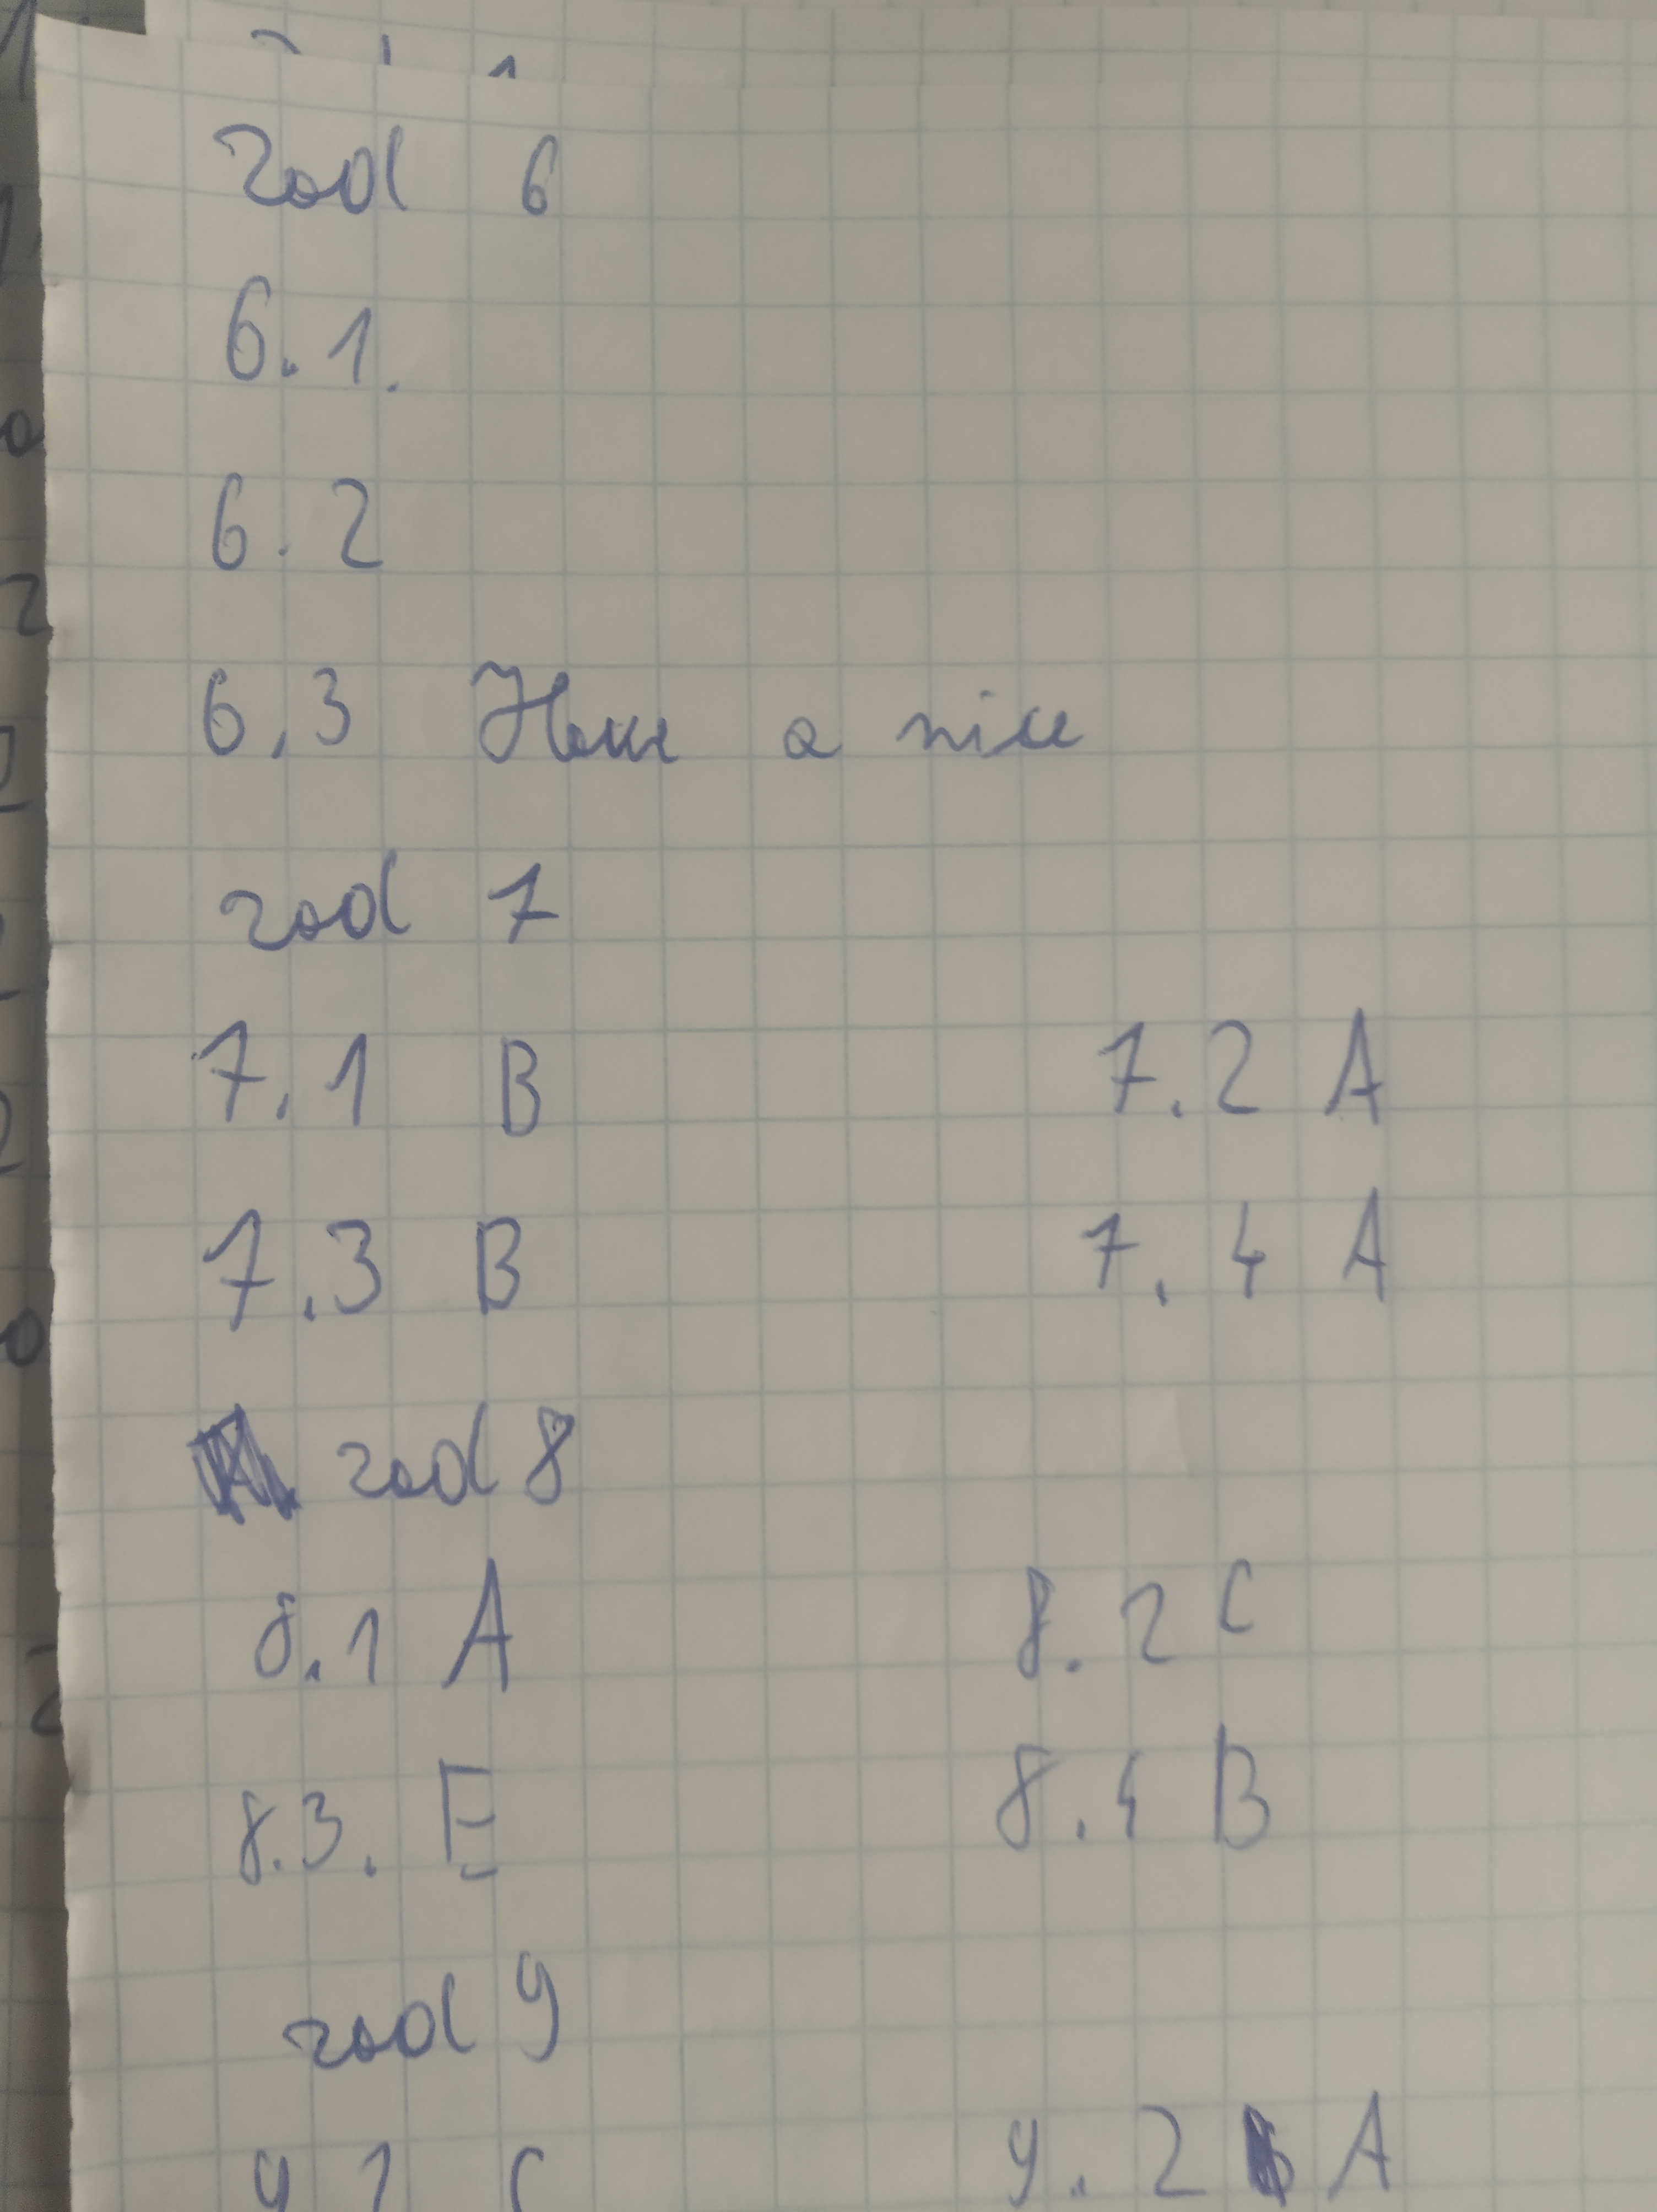 zad 6
6.1.
6.2
6.3 Have a nice
zad 7
7.1 B 7.2 A
7.3 B 7.4 A
zad 8
8.1 A 8.2 C
8.3. E 8.4 B
zad 9
9.1 C 9.2 A